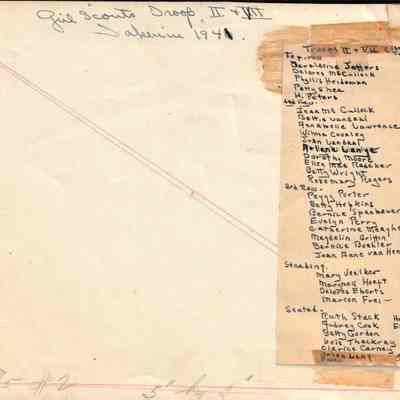 Girl Scouts Troop II & VII
1941.
Troops II & VII
Top row
Geraldine Jeffers
Delores McCullock
Phyllis Heideman
Patty Shea
H. Peters
2nd Row-
Jean McCullock
Bettie Vandeal
Annabelle Lawrence
Wilma Cooley
Joan Vandeal
Arlene
Dorothy Moore
Ellen Mae Raecker
Betty Wright
Rosemary Rogers
3rd Row-
Peggy Porter
Betty Hopkins
Bernice Spanhauer
Evelyn Perry
Catherine Meaghe
Magdelin Griffin
Bernice Buehler
Joan Anne van Hen
Standing.
Mary Veelker
Marynell Hoeft
Delores Eberts
Marion Frei-
Seated-
Ruth Stack
Audrey Cook
Betty Gordon
Lois Thackray
Clarice Carney
5 #2 5" by 5"